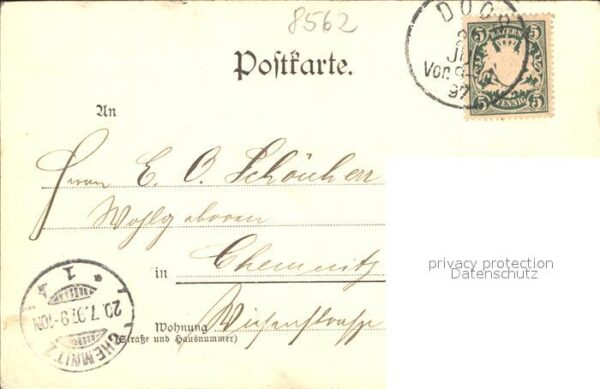 8562
DOOS
Vor
97
BAYERN
5 5
PFENNIG
Postkarte.
An
Herrn E. O.
Wohlgeboren
in Chemnitz
Wiesenstrasse
Wohnung
(Straße und Hausnummer)
CHEMNITZ
1
20.7.97. 9-10N
privacy protection
Datenschutz